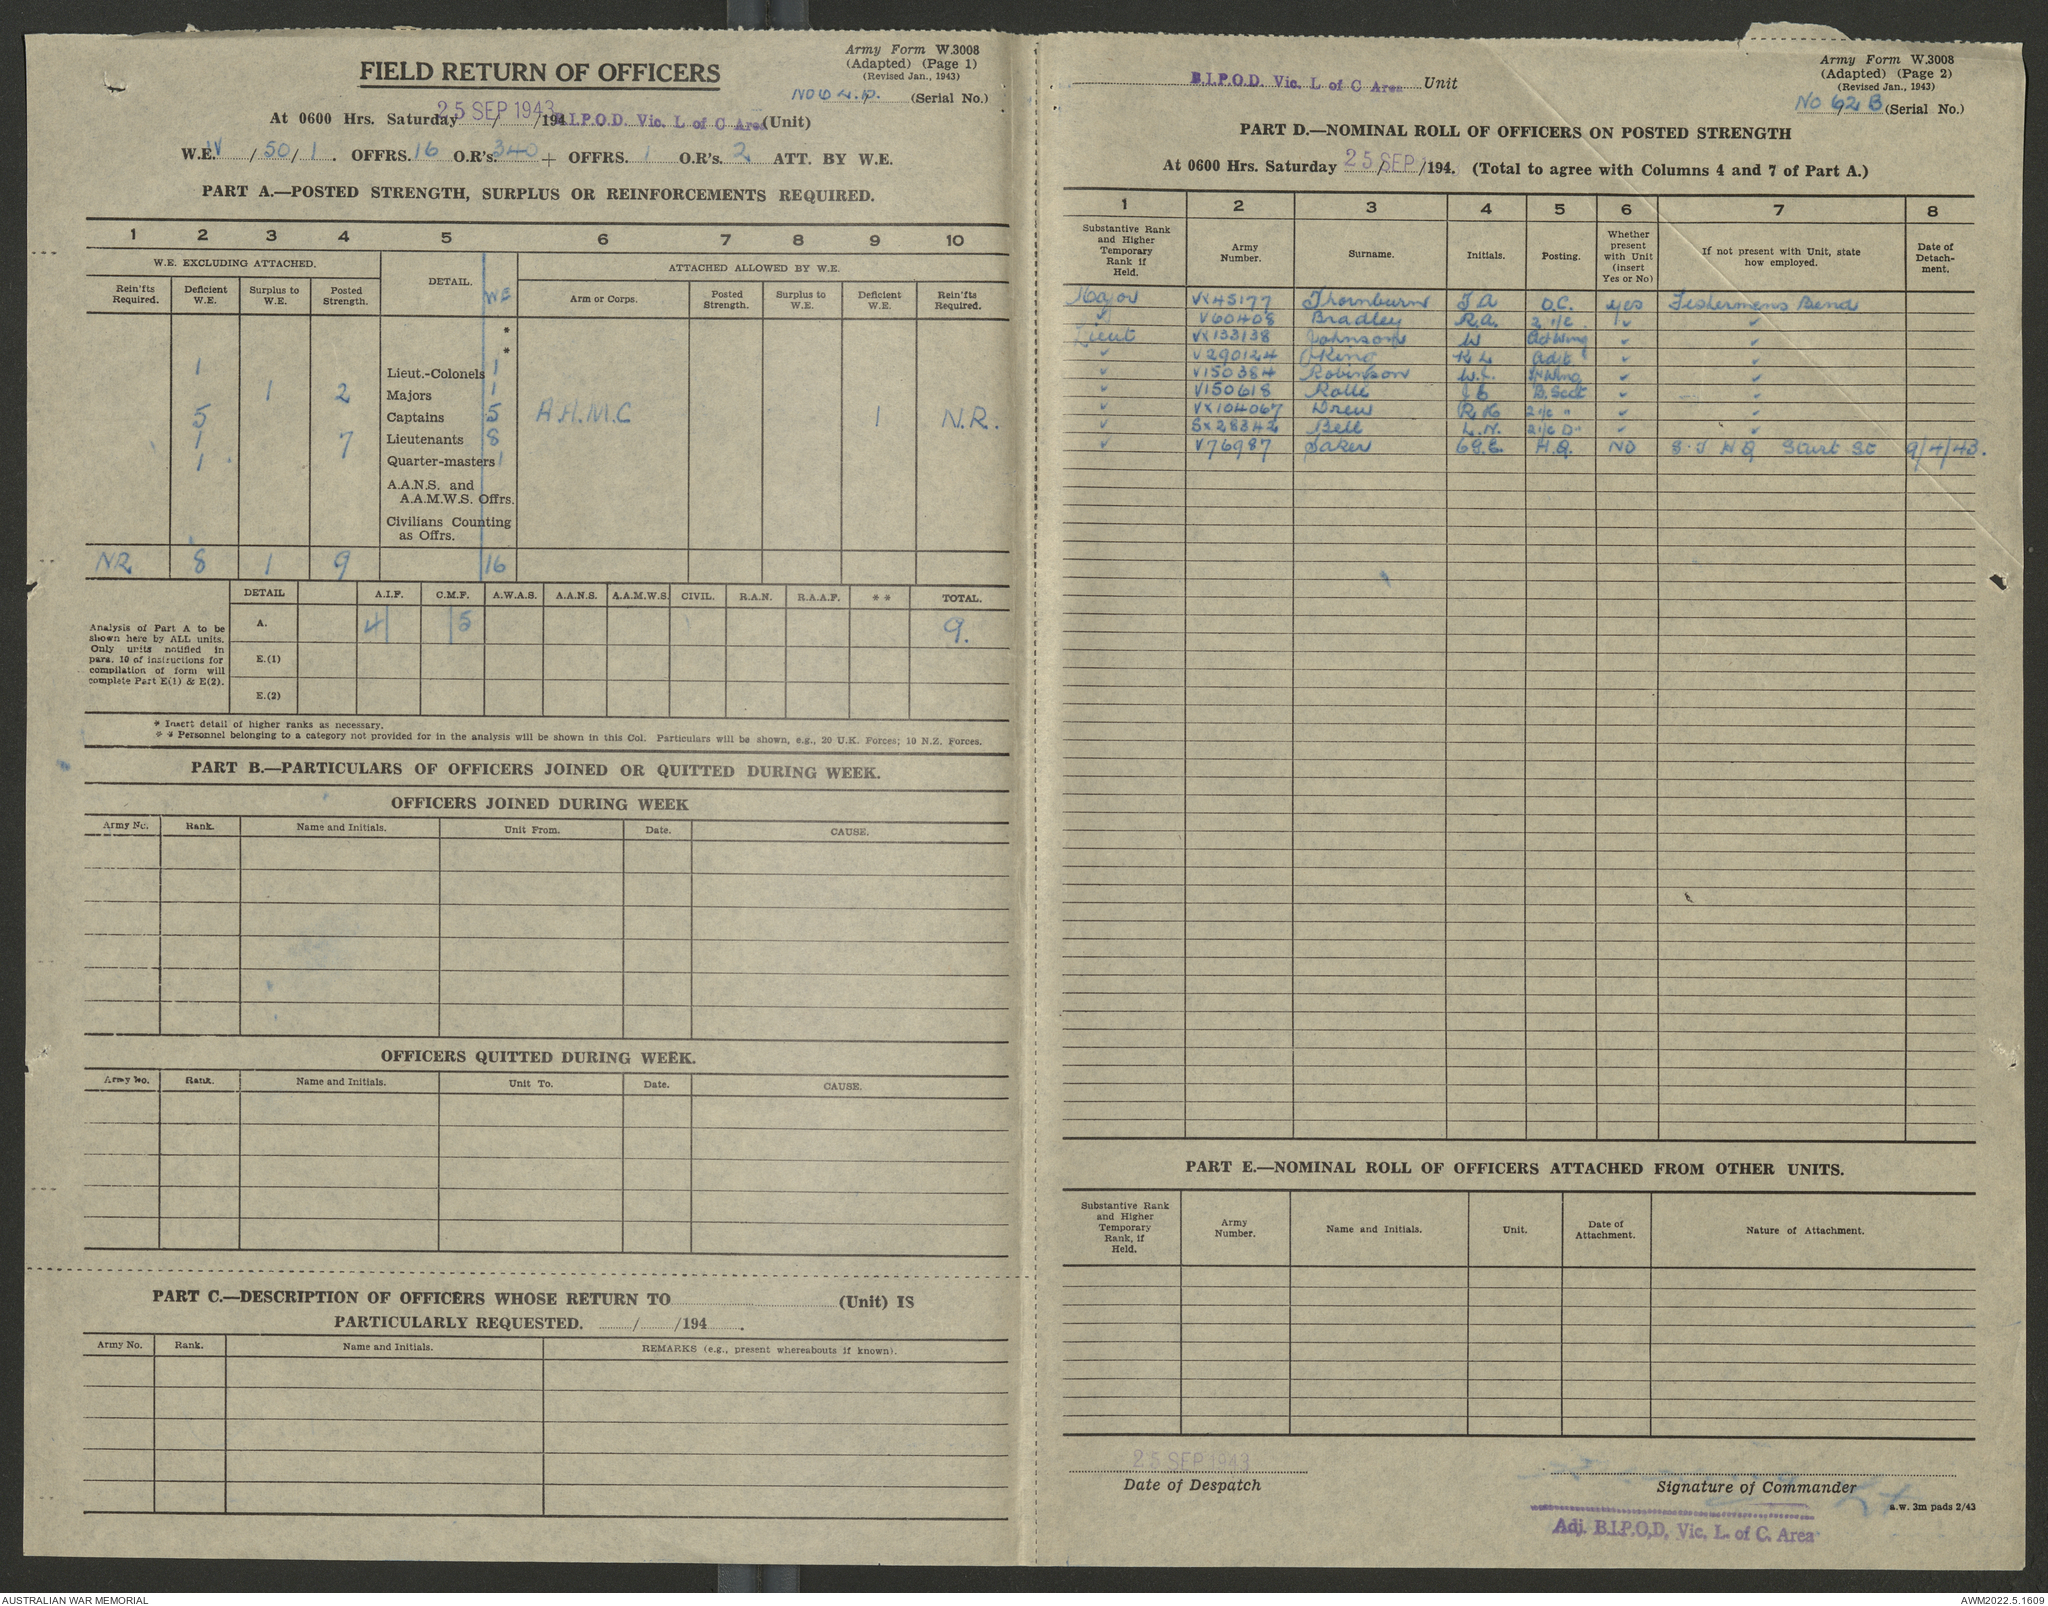 Army Form W.3008
(Adapted) (Page 1)
(Revised Jan., 1943)
FIELD RETURN OF OFFICERS
(Serial No.)
At 0600 Hrs. Saturday 25 SEP 1943 /194 B.I.P.O.D. Vic. L of C Area (Unit)
W.E. IV / 50 / 1 . OFFRS. 16 O.R's. 340 + OFFRS. 1 O.R's. 2 ATT. BY W.E.
PART A.—POSTED STRENGTH, SURPLUS OR REINFORCEMENTS REQUIRED.
1 2 3 4 5 6 7 8 9 10
W.E. EXCLUDING ATTACHED. DETAIL. WE ATTACHED ALLOWED BY W.E.
Rein'fts Required. Deficient W.E. Surplus to W.E. Posted Strength. Arm or Corps. Posted Strength. Surplus to W.E. Deficient W.E. Rein'fts Required.
*
*
1 Lieut.-Colonels 1
1 2 Majors 1
5 Captains 5 A.H.M.C 1 N.R.
1 7 Lieutenants 8
1 Quarter-masters 1
A.A.N.S. and
A.A.M.W.S. Offrs.
Civilians Counting
as Offrs.
NR 8 1 9 16
DETAIL A.I.F. C.M.F. A.W.A.S. A.A.N.S. A.A.M.W.S. CIVIL. R.A.N. R.A.A.F. * * TOTAL.
Analysis of Part A to be
shown here by ALL units.
Only units notified in
para. 10 of instructions for
compilation of form will
complete Part E(1) & E(2).
A. 4 5 9.
E.(1)
E.(2)
* Insert detail of higher ranks as necessary.
* * Personnel belonging to a category not provided for in the analysis will be shown in this Col. Particulars will be shown, e.g., 20 U.K. Forces; 10 N.Z. Forces.
PART B.—PARTICULARS OF OFFICERS JOINED OR QUITTED DURING WEEK.
OFFICERS JOINED DURING WEEK
Army No. Rank. Name and Initials. Unit From. Date. CAUSE.
OFFICERS QUITTED DURING WEEK.
Army No. Rank. Name and Initials. Unit To. Date. CAUSE.
PART C.—DESCRIPTION OF OFFICERS WHOSE RETURN TO (Unit) IS
PARTICULARLY REQUESTED. / /194 .
Army No. Rank. Name and Initials. REMARKS (e.g., present whereabouts if known).
Army Form W.3008
(Adapted) (Page 2)
(Revised Jan., 1943)
B.I.P.O.D. Vic. L of C Area Unit
No 62 B (Serial No.)
PART D.—NOMINAL ROLL OF OFFICERS ON POSTED STRENGTH
At 0600 Hrs. Saturday 25 / SEP /194. (Total to agree with Columns 4 and 7 of Part A.)
1 2 3 4 5 6 7 8
Substantive Rank and Higher Temporary Rank if Held. Army Number. Surname. Initials. Posting. Whether present with Unit (insert Yes or No) If not present with Unit, state how employed. Date of Detachment.
Major VX45177 Thornburn T A O.C. yes Fishermens Bend
✓ V60408 Bradley R.A. 2 i/c ✓ ✓
Lieut VX133138 Johnson W ✓ ✓
✓ V290124 King K L Adjt ✓ ✓
✓ V150384 Robinson W. ✓ ✓
✓ V150618 Rolls B. Sect ✓ ✓
✓ VX104067 Drew R K 2 i/c " ✓ ✓
✓ SX28342 Bell L.N. 2 i/c D" ✓ ✓
✓ V76987 H.Q. NO HQ Sturt St 9/4/43.
PART E.—NOMINAL ROLL OF OFFICERS ATTACHED FROM OTHER UNITS.
Substantive Rank and Higher Temporary Rank, if Held. Army Number. Name and Initials. Unit. Date of Attachment. Nature of Attachment.
25 SEP 1943
Date of Despatch
Signature of Commander
a.w. 3m pads 2/43
Adj. B.I.P.O.D. Vic. L. of C. Area
AUSTRALIAN WAR MEMORIAL
AWM2022.5.1609